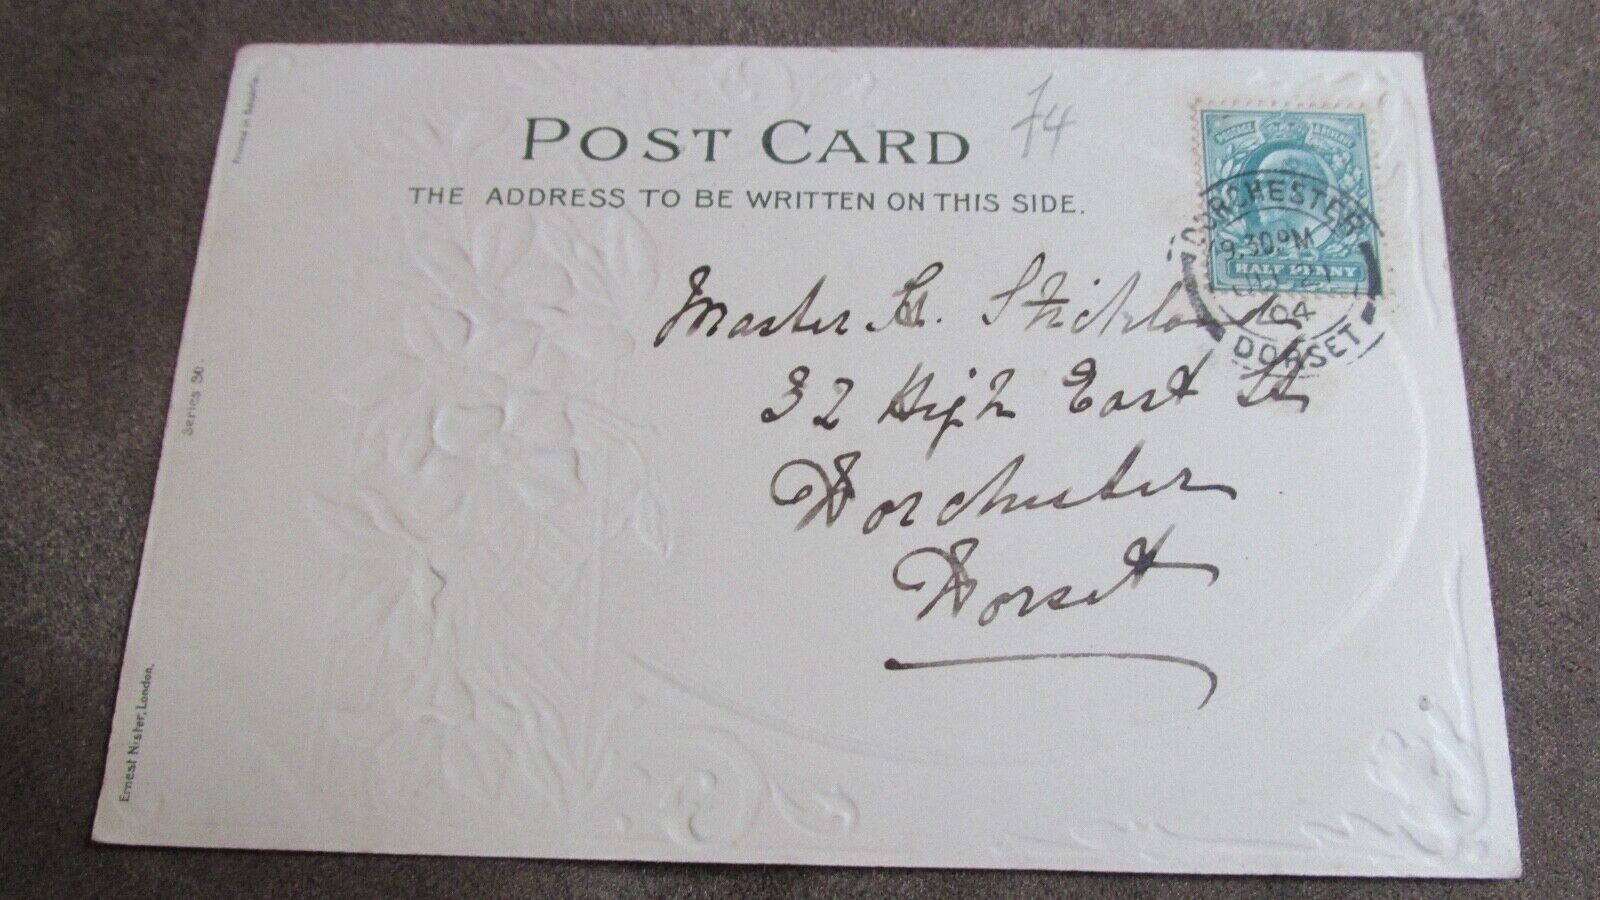 POST CARD
THE ADDRESS TO BE WRITTEN ON THIS SIDE.
Printed in Bavaria.
Series 30.
Ernest Nister, London.
74
POSTAGE & REVENUE
HALF PENNY
DORCHESTER
9.30PM
04
DORSET
Master H. Strickland
32 High East St
Dorchester
Dorset